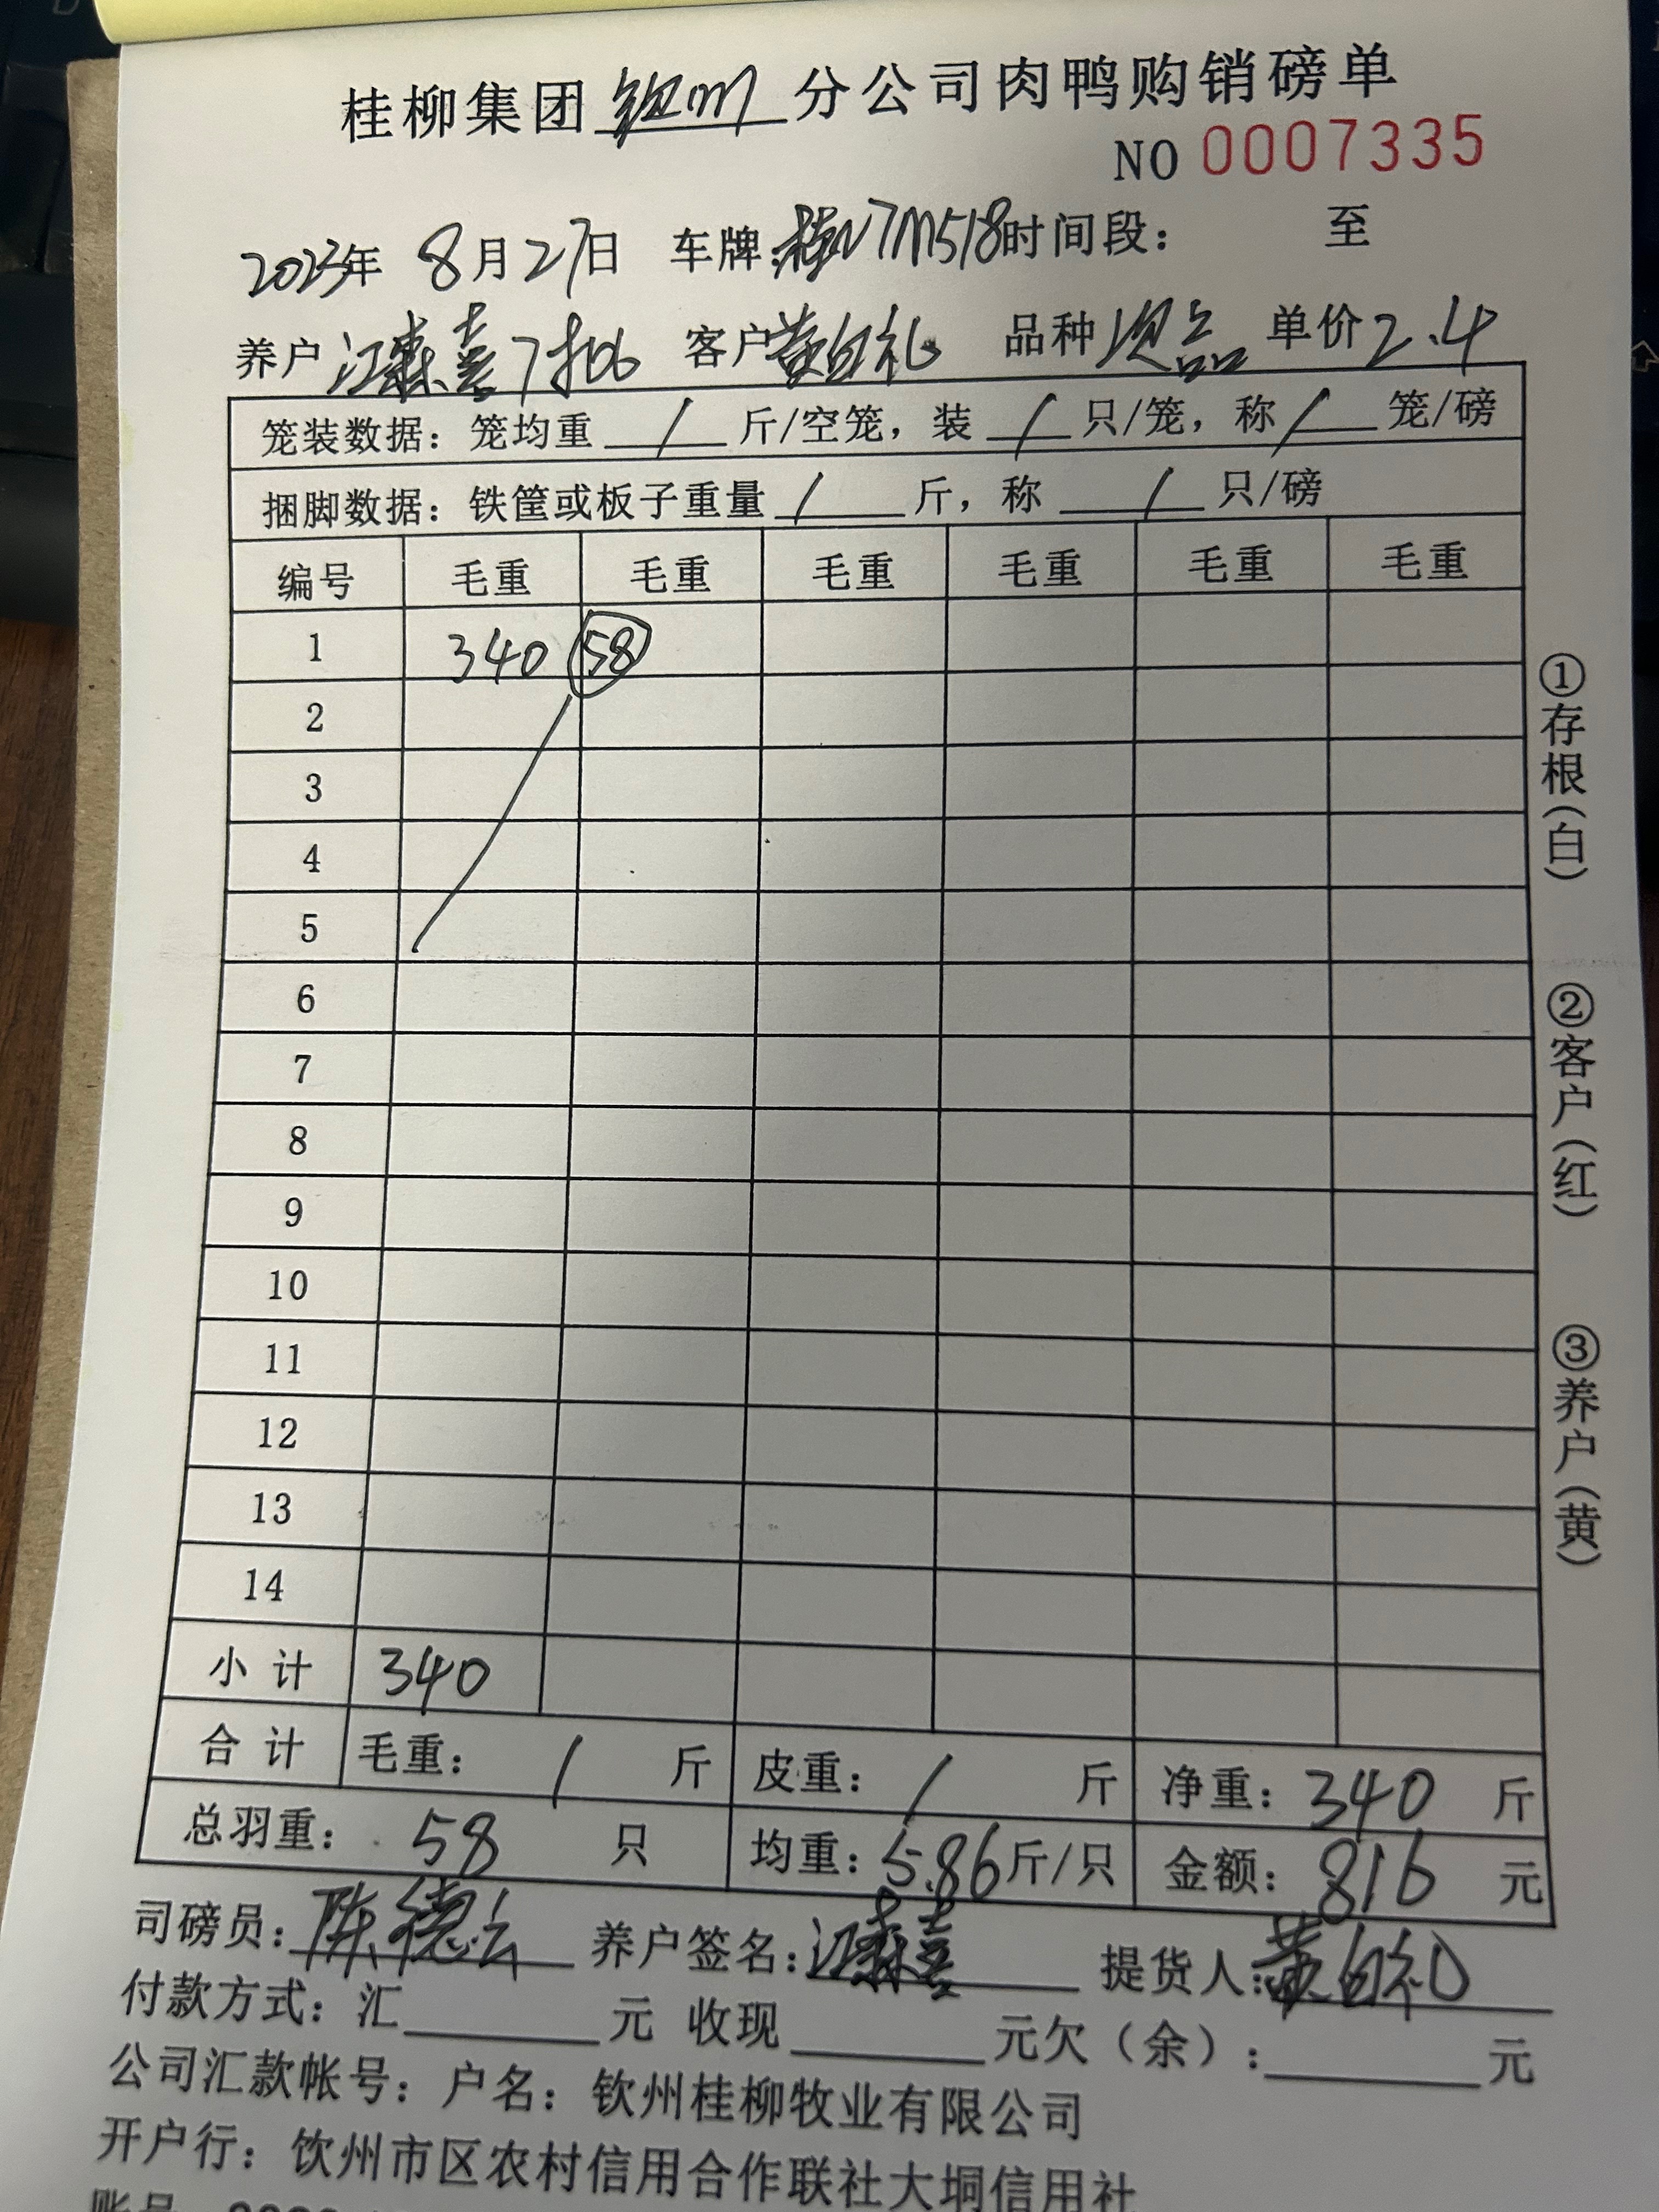 桂柳集团钦州分公司肉鸭购销磅单
NO 0007335
2023年 8月27日 车牌:桂N7M518时间段: 至
养户江森喜7批 客户黄白礼 品种次品 单价2.4
笼装数据: 笼均重 / 斤/空笼, 装 / 只/笼, 称 / 笼/磅
捆脚数据: 铁筐或板子重量 / 斤, 称 / 只/磅
编号 毛重 毛重 毛重 毛重 毛重 毛重
1 340 58
2
3
4
5
6
7
8
9
10
11
12
13
14
小计 340
合计 毛重: / 斤 皮重: / 斤 净重: 340 斤
总羽重: 58 只 均重: 5.86斤/只 金额: 816 元
司磅员: 陈德云 养户签名: 江森喜 提货人: 黄白礼
付款方式: 汇 元 收现 元欠(余): 元
公司汇款帐号: 户名: 钦州桂柳牧业有限公司
开户行: 钦州市区农村信用合作联社大垌信用社
①存根(白)
②客户(红)
③养户(黄)